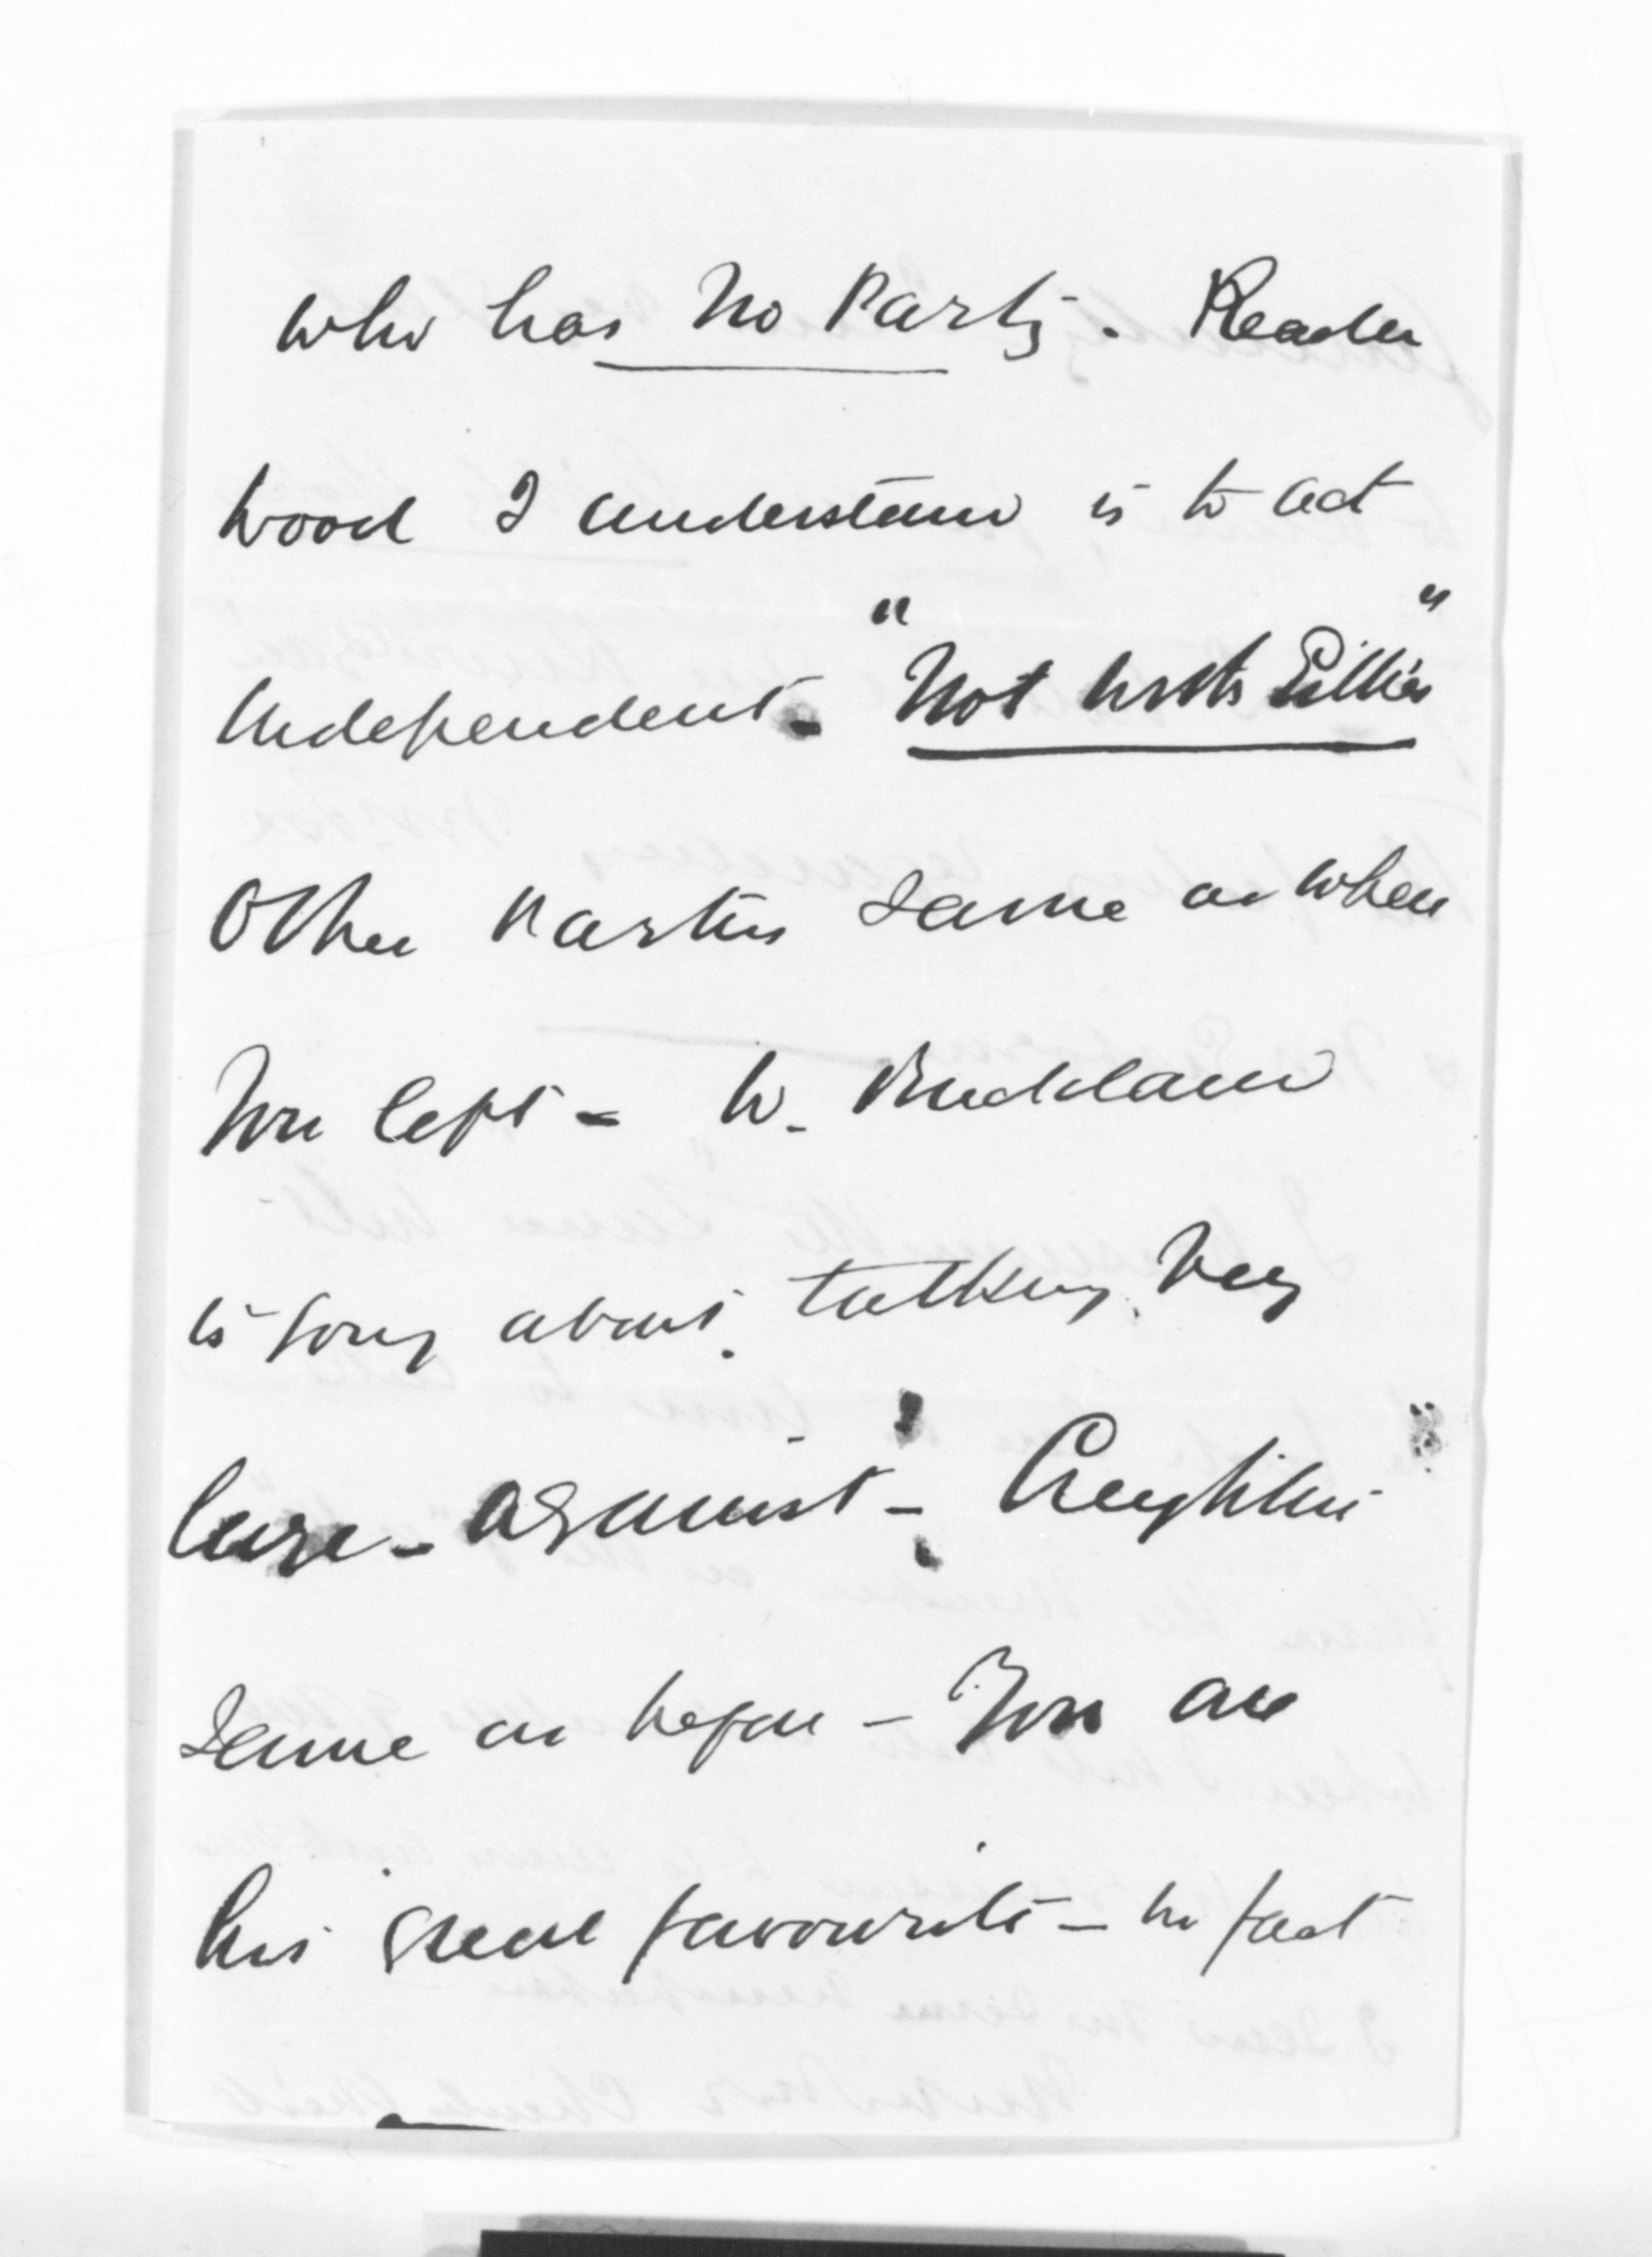 who has No Party. Reader
Wood I understand is to act
independent. "Not with Gillies"
Other Parties same as when
You left - W. Buckland
is going about talking very
large - against - Creighton
same as before - You are
his great favourite - in fact